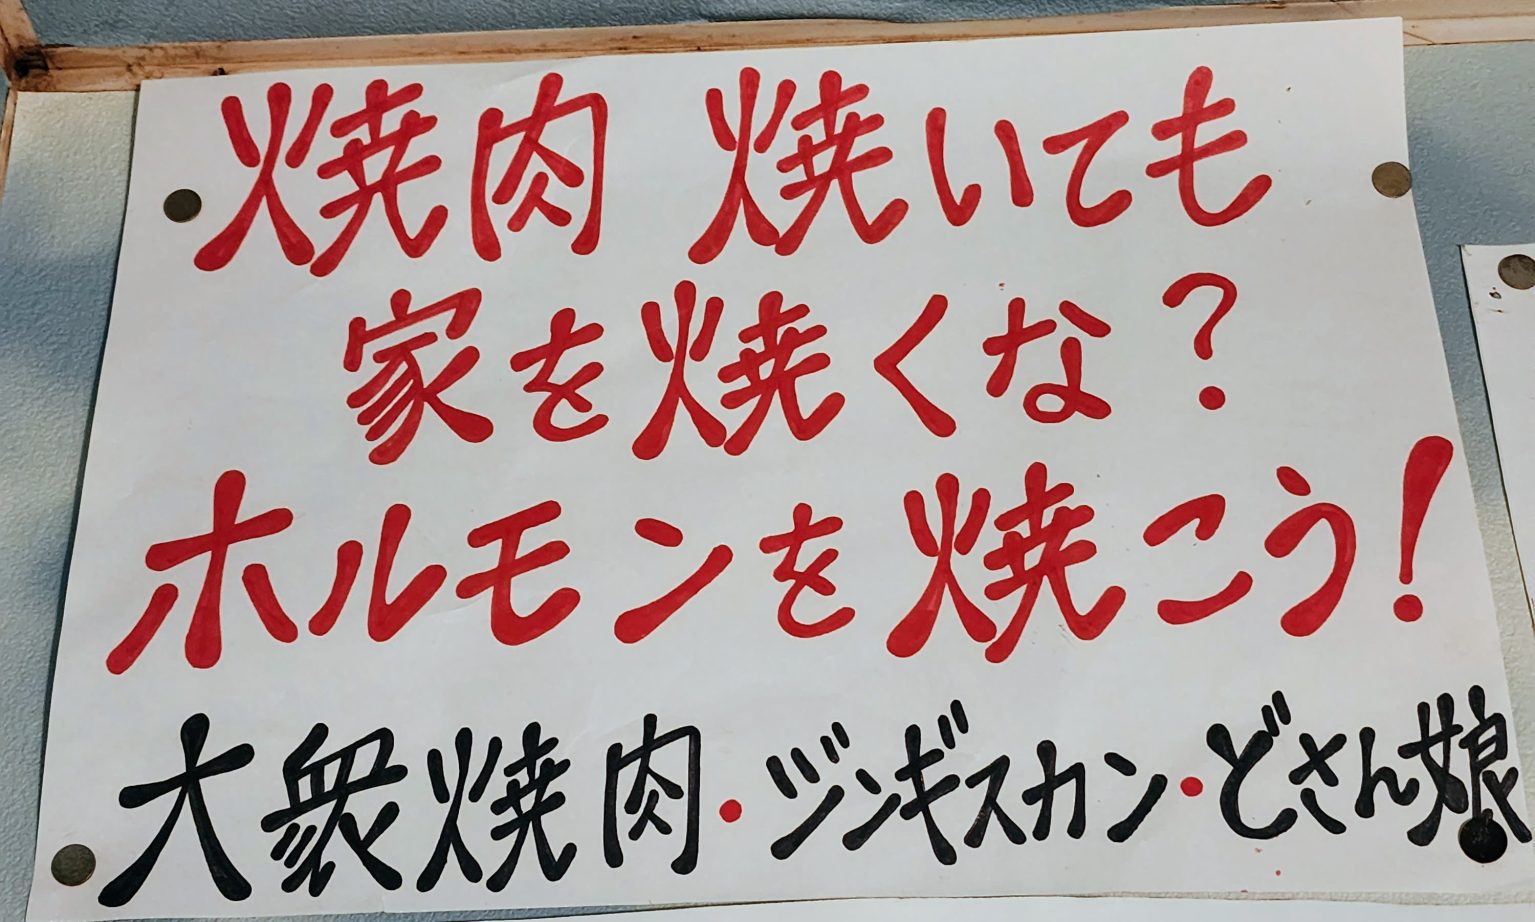 焼肉 焼いても
家を焼くな?
ホルモンを焼こう!
大衆焼肉・ジンギスカン・どさん娘